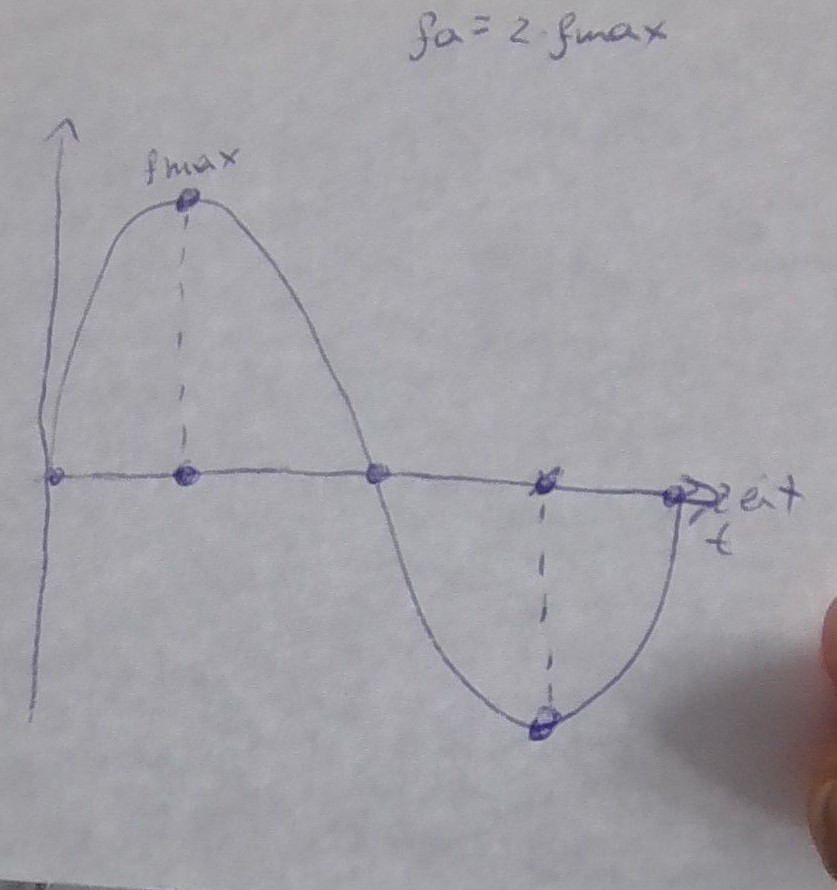 fa = 2 · fmax
fmax
zeit
t